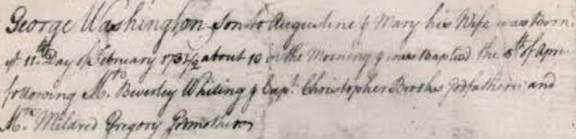 George Washington Son to Augustine & Mary his Wife was Born
yᵉ 11th Day of February 1731/2 about 10 in the Morning & was Baptised the 5th of April
following Mr Beverley Whiting & Capt Christopher Brooks Godfathers and
Mrs Mildred Gregory Godmother